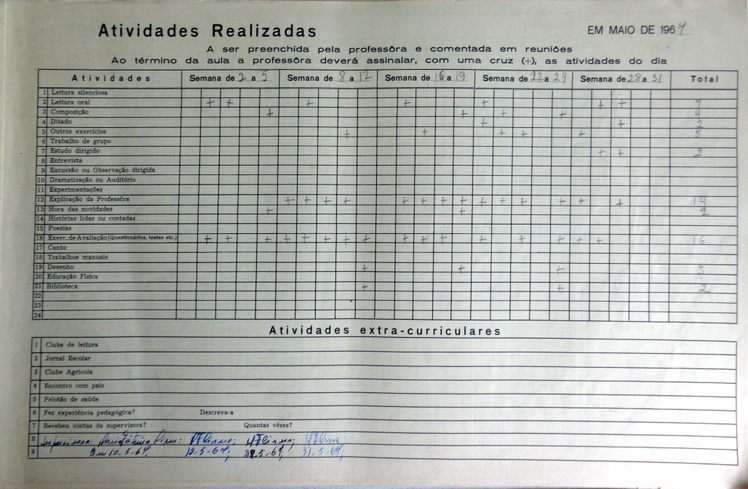 Atividades Realizadas
EM MAIO DE 1967
A ser preenchida pela professôra e comentada em reuniões
Ao término da aula a professôra deverá assinalar, com uma cruz (+), as atividades do dia
Atividades Semana de 2 a 5 Semana de 8 a 12 Semana de 16 a 19 Semana de 22 a 24 Semana de 28 a 31 Total
1 Leitura silenciosa
2 Leitura oral + + + + + + + 7
3 Composição + + + + 4
4 Ditado + +
5 Outros exercícios + + + + + 5
6 Trabalho de grupo
7 Estudo dirigido + + 2
8 Entrevista
9 Excursão ou Observação dirigida
10 Dramatização ou Auditório
11 Experimentações
12 Explicação da Professôra + + + + + + + + + + + + + + 14
13 Hora das novidades + + 2
14 Histórias lidas ou contadas
15 Poesias
16 Exerc. de Avaliação (Questionários, testes etc.) + + + + + + + + + + + + + + + + 16
17 Canto
18 Trabalhos manuais
19 Desenho + + + 3
20 Educação Física
21 Biblioteca + + 2
22
23
24
Atividades extra-curriculares
1 Clube de leitura
2 Jornal Escolar
3 Clube Agrícola
4 Encontro com pais
5 Pelotão de saúde
6 Fez experiência pedagógica? Descreva-a
7 Recebeu visitas da supervisora? Quantas vêzes?
8
9